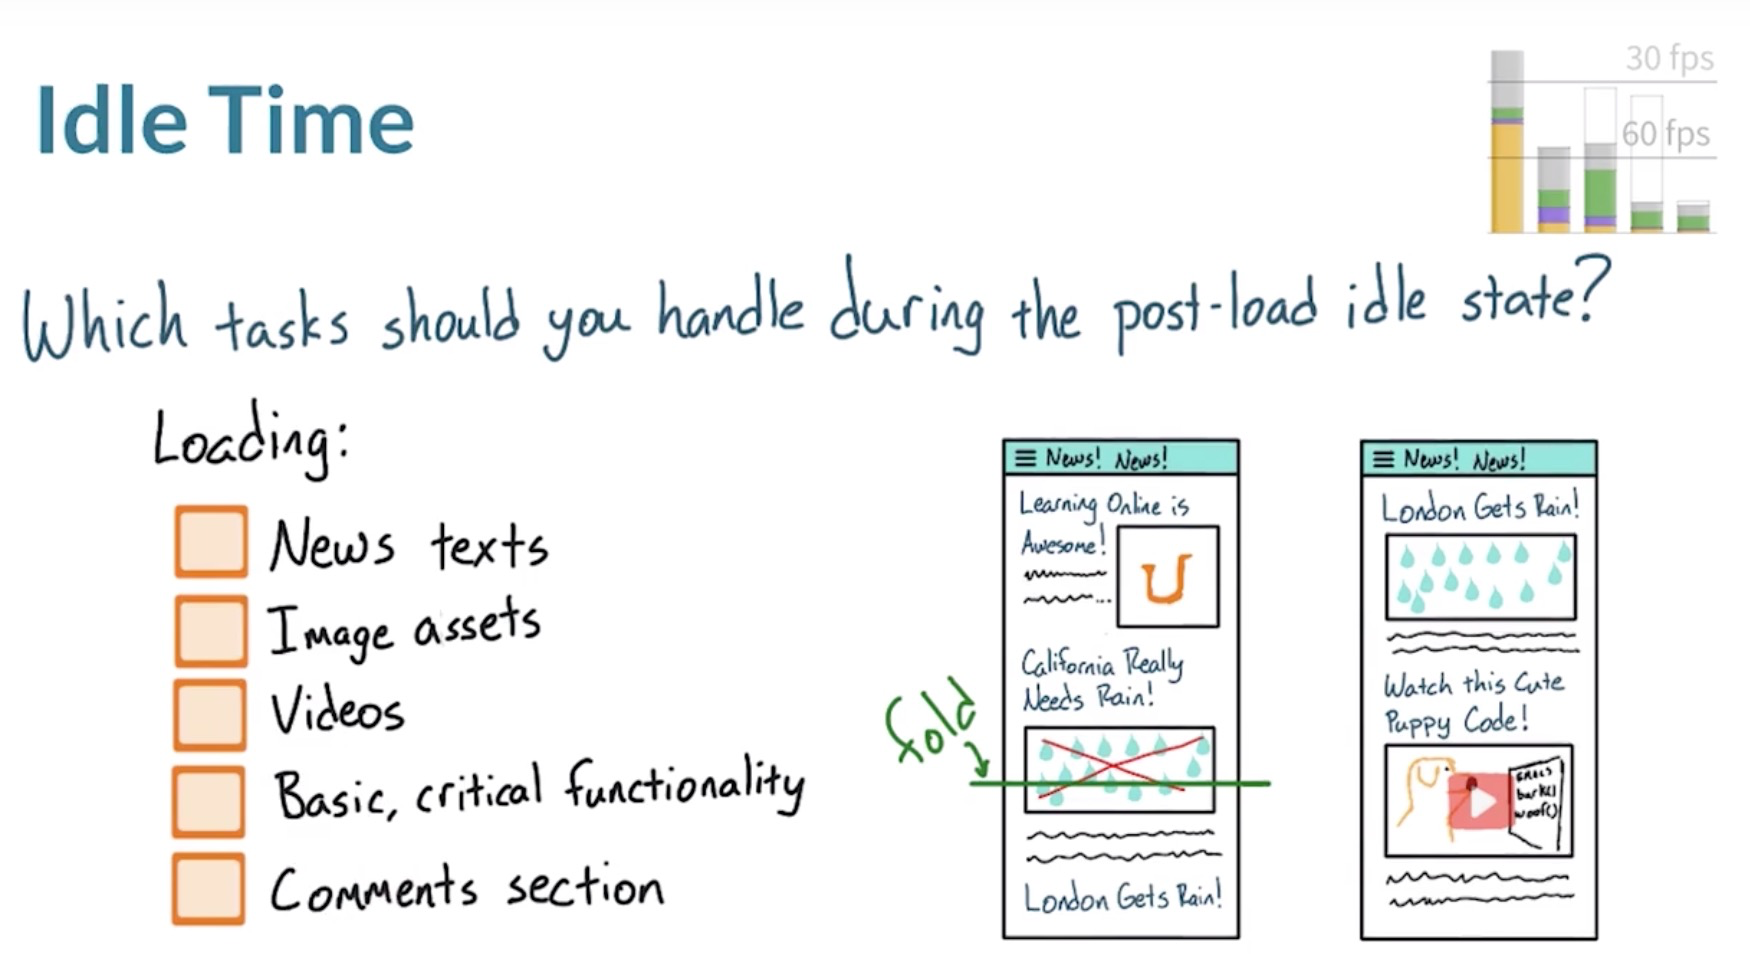 Idle Time
30 fps
60 fps
Which tasks should you handle during the post-load idle state?
Loading:
News texts
Image assets
Videos
Basic, critical functionality
Comments section
fold
News! News!
Learning Online is
Awesome!
U
California Really
Needs Rain!
London Gets Rain!
News! News!
London Gets Rain!
Watch this Cute
Puppy Code!
bark()
woof()